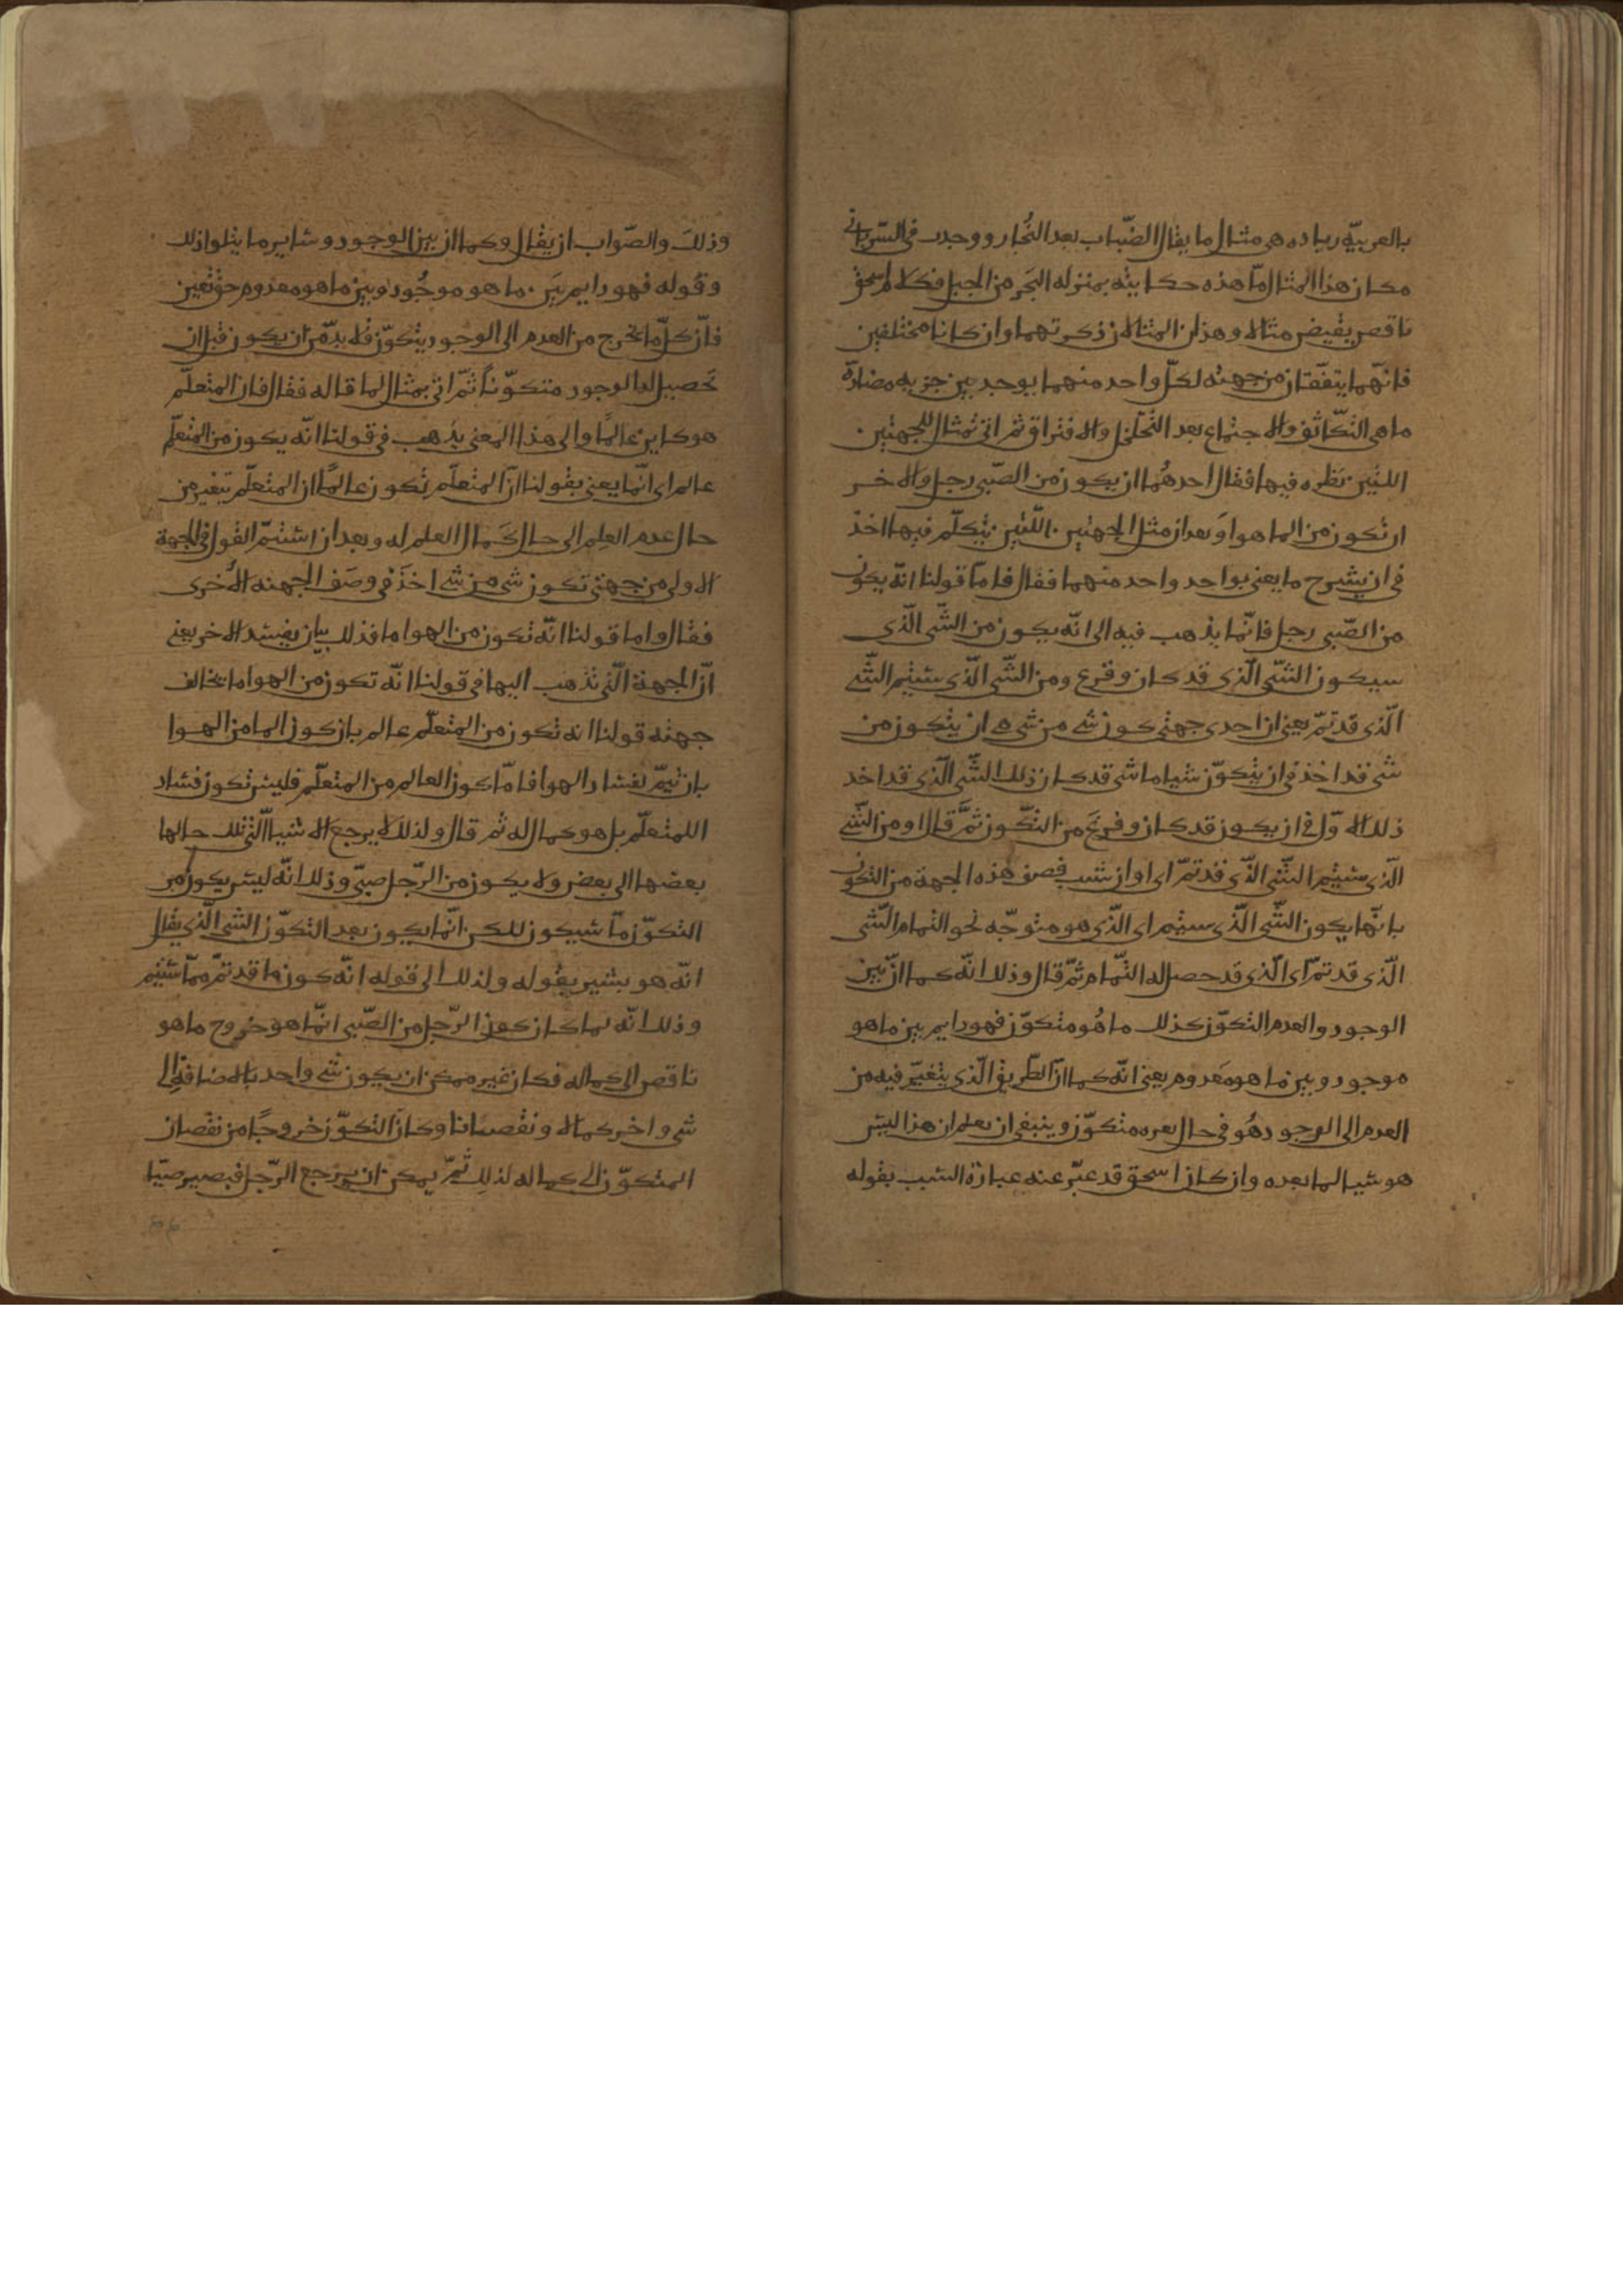 بالعربيّة زياده هي مثال ما يقال الضّباب بعد البُخار ووجدت في السّرياني
مكان هذا المثال مّا هذه حكايته بمنزله البَحر من الجبل فكلام اسحق
ناقص بقيض مثالا وهذان المثالان ذكرتهما وان كانا مختلفين
فانّهما يتفّقان من جهته لكلّ واحد منهما يوجد بين جزيه مضادّة
ما هي التكّاثف والاجتماع بعد التّخلخل والافتراق ثم اتى بمثال للجهتين
اللتين نَظره فيها فقال احدهُما ان يكون من الصّبي رجل والاخر
ان تكون من الما هوا وَبعد ان مثل الجهتين اللّتين يتكلّم فيها اخذ
في ان يشرح ما يعني بواحد واحد منهما فقال فامّا قولنا انّه يكون
من الصّبي رجل فانّما يذهب فيه الى انّه يكون من الشّي الّذي
سيكون الشّي الّذي قد كان وفرغ ومن الشّي الّذي سيتم الشّي
الّذي قد تمّ يعني ان احدى جهتي كون شي من شي هي ان يتكون من
شي قد اخذ في ان يتكوّن شيا ما شي قد كان ذلك الشّي الّذي قد اخذ
ذلك الاوّل في ان يكون قد كان وفرغَ من التكّون ثمَّ قال او من الشّي
الّذي سيتم الشّي الّذي قد تمّ اي او ان شيت فصف هذه الجهة من التكون
بانّها يكون الشّي الّذي سيتم اي الّذي هو متوجّه نحو التمام الشّي
الّذي قد تمّ اي الّذي قد حصل له التّمام ثمّ قال وذلك انّه كما انّ بين
الوجود والعدم التكوّن كذلك ما هُو متكوّن فهو دايم بين ما هو
موجود وبين ما هو مَعدوم يعني انّه كما انّ الطّريق الّذي يتغيّر فيه من
العدم الى الوجود هُو في حال بعده متكوّن وينبغي ان يعلم ان هذا ليس
هو شيا لما بعده وان كان اسحق قد عبّر عنه عبارة السبب بقوله
وذلكَ والصّواب ان يقال وكما ان بين الوجود وساير ما يتلوا ذلك
وقوله فهو دايم بَين ما هو موجُود وبين ما هو معدوم حق يقين
فانّ كلّ ما يخرج من العدم الى الوجود يتكوّن فلا بدّ من ان يكون قبل ان
تَحصيل له الوجود متكوّناً ثمّ اتى بمثال لما قاله فقال فان المتعلّم
هو كاين عالمًا والى هذا المعنى يذهب في قولنا انّه يكون من المتعلّم
عالم اي انّما يعني بقولنا انّ المتعلّم تكون عالمًا ان المتعلّم يتغير من
حال عدم العِلم الى حال كَمال العلم له وبعد ان استتمّ القول في الجهة
الاولى من جهتي تكون شي من شي اخذَ في وصَف الجهته الاُخرى
فقال واما قولنا انّه تكون من الهوا ما فذلك بيان يفسد الاخر يعني
انّ الجهة الّتي نذهب اليها في قولنا انّه تكون من الهوا ما تخالف
جهته قولنا انه تكون من المتعلّم عالم بان كون الما من الهوا
بان يتمّ بفساد الهوا فامّا كون العالم من المتعلّم فليس تكون فساد
اللمتعلّم بل هو كمال له ثم قال ولذلك لا يرجع الاشيا الّتي تلك حالها
بعضها الى بعض ولا يكون من الرّجل صبيّ وذلك انّه ليس يكون من
التكوّن ما سيكون للكن انّما يكون بعد التكوّن الشي الّذي يقال
انّه هو يشير بقوله ولذلك الى قوله انّه كون ما قد تمّ ممّا سيتم
وذلك انّه لما كان كون الرّجل من الصّبي انّما هو خروج ما هو
ناقص الى كماله فكان غير ممكن ان يكون شي واحد بالاضافه الى
شي واخر كمالا ونقصانا وكانَ التكوّن خروجًا من نقصان
المتكوّن الى كماله لذلِك لم يمكن ان يرجع الرّجل فيصير صبيّا